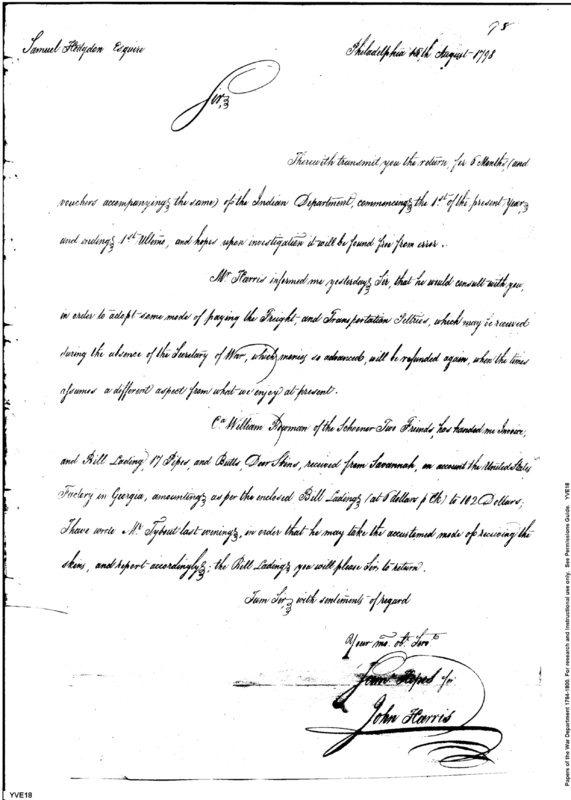 98
Samuel Hodgdon Esquire
Philadelphia 15th August 1798
Sir,
I herewith transmit you the return, for 6 Months, (and
vouchers accompanying the same) of the Indian Department, commencing the 1st of the present Year,
and ending 1st Ultimo, and hopes upon investigation it will be found free from error.
Mr. Harris informed me yesterday Sir, that he would consult with you,
in order to adopt some mode of paying the Freight and Transportation Peltries, which may be received
during the absence of the Secretary of War, which monies so advanced, will be refunded again, when the times
assumes a different aspect from what we enjoy at present.
Ca William of the Schooner Two Friends, has handed me Invoice,
and Bill Lading, 17 Pipes, and Butts Deer Skins, received from Savannah, on account the United States
Factory in Georgia, amounting as per the enclosed Bill Lading (at 6 dollars p Ck) to 102 Dollars,
I have wrote Mr. Tybout last evening, in order that he may take the accustomed mode of receiving the
skins, and report accordingly; the Bill Lading you will please Sir to return.
I am Sir, with sentiments of regard
Your mo. ot. Servt.
for
John Harris
YVE18
Papers of the War Department 1784-1800. For research and instructional use only. See Permissions Guide. YVE18